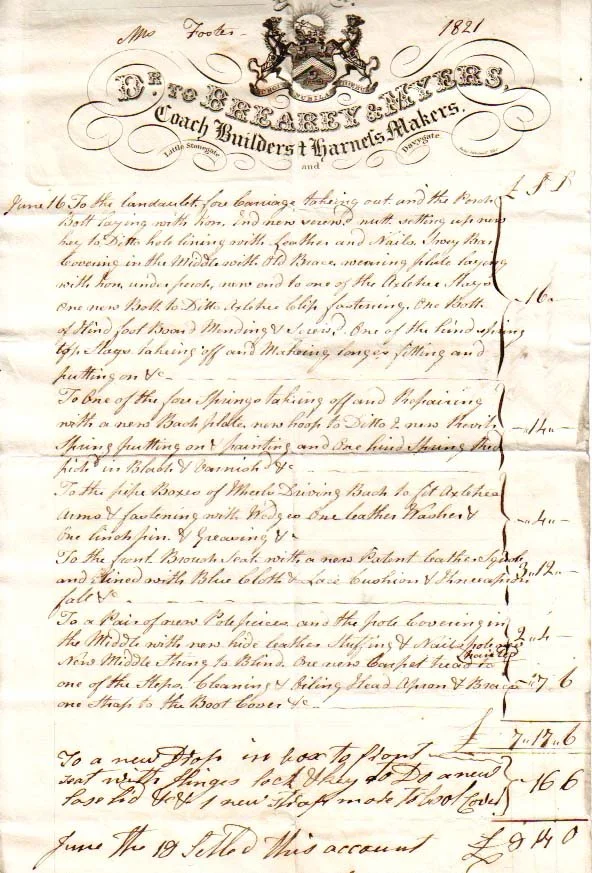 Mrs Foster 1821
Dr. TO BREAREY & MYERS,
Coach Builders & Harness Makers.
Little Stonegate and Davygate
£ S D
June 16 To the landaulet fore Carriage takeing out and the Perch
Bolt laying with Iron, End new screwd nutt setting up new
key to Ditto hole lining with Leather and Nails. Swey Bar
Covering in the Middle with Old Brace, wearing plate laying
with Iron, under perch, new end to one of the Axletree Stays
One new Bolt to Ditto Axletree Clip fastening, One Bolt
of Hind foot Board Mending & Screwd. One of the hind spring
top Stays takeing off and Makeing longer fitting and
putting on &c — 16 —
To One of the fore Springs takeing off and Repairing
with a new Back plate, new hoop to Ditto & new Rivits
Spring putting on & painting and One hind Spring
pickd in Black & Varnishd &c — 14 —
To the pipe Boxes of Wheels Driving Back to fit Axletree
Arms & fastening with Wedges One leather Washer &
One linch pin & Greasing &c — 4 —
To the front Seat with a new Patent leather
and lined with Blue Cloth & Lace Cushion &
fall &c 3 12 —
To a Pair of new Polepieces and the pole Covering in
the Middle with new hide leather Stuffing & Nails pole 2 4 —
New Middle String to Blind. One new Carpet head to
one of the Steps. Cleaning & Oiling Head Apron & Braces
one Strap to the Boot Cover &c — 7 6
£ 7 17 6
To a new Drop in box to front
seat with Hinges lock & key to Do a new
lid & 1 new Strap made to boot Cover 16 6
June the 19 Settled this account £ 8 14 0